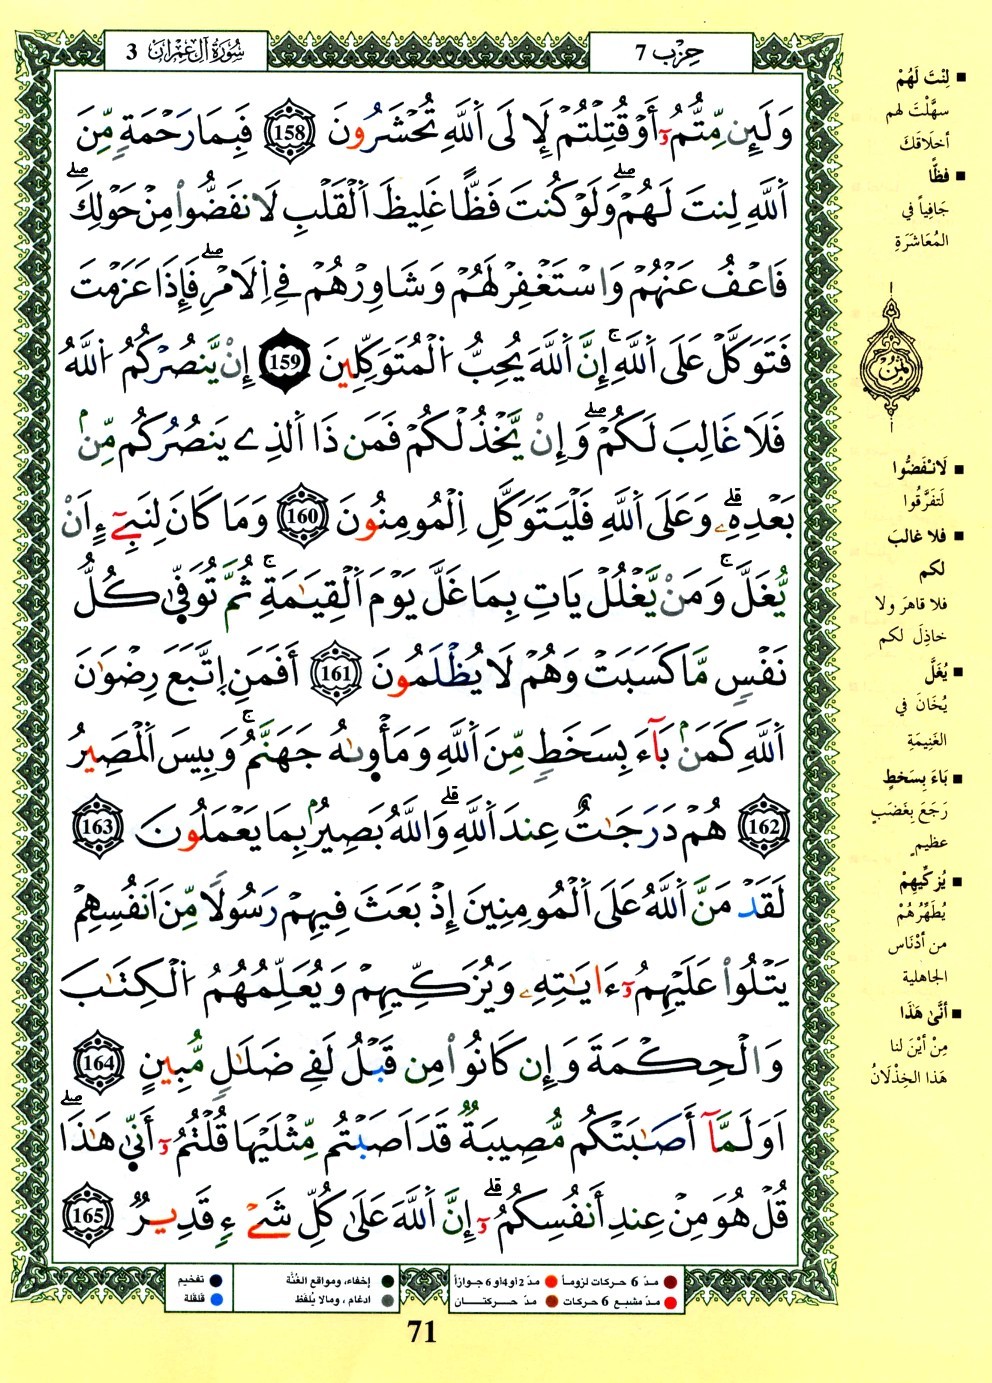 سُورَةُ آلِ عِمْرَانَ 3
حِزْب 7
وَلَئِن مِّتُّمُۥٓ أَوْ قُتِلْتُمْ لَإِلَى اَ۬للَّهِ تُحْشَرُونَ 158 فَبِمَا رَحْمَةٖ مِّنَ
اَ۬للَّهِ لِنتَ لَهُمْۖ وَلَوْ كُنتَ فَظّاً غَلِيظَ اَ۬لْقَلْبِ لَانفَضُّواْ مِنْ حَوْلِكَۖ
فَاعْفُ عَنْهُمْ وَاسْتَغْفِرْ لَهُمْ وَشَاوِرْهُمْ فِے اِ۬لَامْرِۖ فَإِذَا عَزَمْتَ
فَتَوَكَّلْ عَلَى اَ۬للَّهِۚ إِنَّ اَ۬للَّهَ يُحِبُّ اُ۬لْمُتَوَكِّلِينَ 159 إِنْ يَّنصُرْكُمُ اُ۬للَّهُ
فَلَا غَالِبَ لَكُمْۖ وَإِنْ يَّخْذُلْكُمْ فَمَن ذَا اَ۬لذِے يَنصُرُكُم مِّنۢ
بَعْدِهِۦۗ وَعَلَى اَ۬للَّهِ فَلْيَتَوَكَّلِ اِ۬لْمُومِنُونَ 160 وَمَا كَانَ لِنَبِےٓءٍ اَنْ
يُّغَلَّۚ وَمَنْ يَّغْلُلْ يَاتِ بِمَا غَلَّ يَوْمَ اَ۬لْقِيَٰمَةِۚ ثُمَّ تُوَفّ۪يٰ كُلُّ
نَفْسٖ مَّا كَسَبَتْ وَهُمْ لَا يُظْلَمُونَ 161 أَفَمَنِ اِ۪تَّبَعَ رِضْوَٰنَ
اَ۬للَّهِ كَمَنۢ بَآءَ بِسَخَطٖ مِّنَ اَ۬للَّهِ وَمَأْو۪يٰهُ جَهَنَّمُۚ وَبِيسَ اَ۬لْمَصِيرُ
162 هُمْ دَرَجَٰتٌ عِندَ اَ۬للَّهِۗ وَاللَّهُ بَصِيرُۢ بِمَا يَعْمَلُونَ 163
لَقَدْ مَنَّ اَ۬للَّهُ عَلَى اَ۬لْمُومِنِينَ إِذْ بَعَثَ فِيهِمْ رَسُولاٗ مِّنَ اَنفُسِهِمْ
يَتْلُواْ عَلَيْهِمُۥٓ ءَايَٰتِهِۦ وَيُزَكِّيهِمْ وَيُعَلِّمُهُمُ اُ۬لْكِتَٰبَ
وَالْحِكْمَةَ وَإِن كَانُواْ مِن قَبْلُ لَفِے ضَلَٰلٖ مُّبِينٍ 164
اَوَلَمَّآ أَصَٰبَتْكُم مُّصِيبَةٞ قَدَ اَصَبْتُم مِّثْلَيْهَا قُلْتُمُۥٓ أَنّ۪يٰ هَٰذَاۖ
قُلْ هُوَ مِنْ عِندِ أَنفُسِكُمُۥٓۗ إِنَّ اَ۬للَّهَ عَلَىٰ كُلِّ شَےْءٖ قَدِيرٞ 165
لِنْتَ لَهُمْ
سهَّلْتَ لهم
أخلَاقَكَ
فظًّا
جَافِياً في
المُعَاشَرَةِ
ثُمُن
لَانْفَضُّوا
لَتفَرَّقُوا
فلا غالبَ
لكم
فلا قاهرَ ولا
خاذِلَ لكم
يُغَلَّ
يُخَانَ في
الغَنِيمَةِ
بَاءَ بِسَخطٍ
رَجَعَ بِغَضَبٍ
عظيمٍ
يُزكِّيهِمْ
يُطَهِّرُهُمْ
من أدْنَاس
الجاهلية
أنَّىٰ هَذَا
مِنْ أيْنَ لنا
هَذا الخِذْلَانُ
مدّ 6 حركات لزوماً
مدّ 2 أو 4 أو 6 جوازاً
مدّ مشبع 6 حركات
مدّ حركتان
إخفاء، ومواقع الغُنَّة
ادغام ، وما لا يُلفظ
تفخيم
قلقلة
71